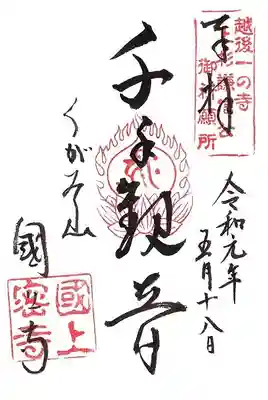 越後一の寺
上杉謙信公
御祈願所
奉拝
令和元年
五月十八日
千手観音
くがみ山
國上寺